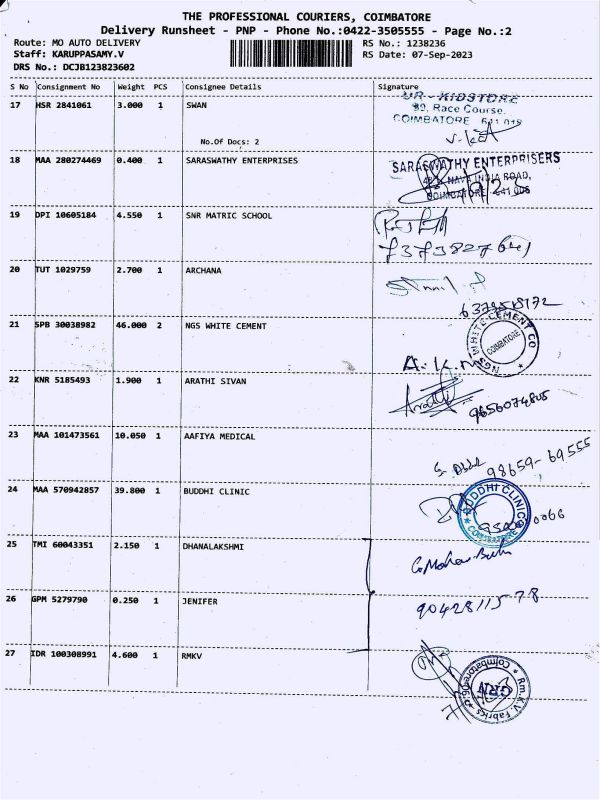 THE PROFESSIONAL COURIERS, COIMBATORE
Delivery Runsheet - PNP - Phone No.:0422-3505555 - Page No.:2
Route: MO AUTO DELIVERY RS No.: 1238236
Staff: KARUPPASAMY.V RS Date: 07-Sep-2023
DRS No.: DCJB123823602
S No Consignment No Weight PCS Consignee Details Signature
17 HSR 2841061 3.000 1 SWAN
KIDSTORE
89, Race Course,
COIMBATORE 641 018
No.Of Docs: 2
18 MAA 280274469 0.400 1 SARASWATHY ENTERPRISES SARASWATHY ENTERPRISERS
NAVA INDIA ROAD,
COIMBATORE 641 006
19 DPI 10605184 4.550 1 SNR MATRIC SCHOOL
20 TUT 1029759 2.700 1 ARCHANA
21 SPB 30038982 46.000 2 NGS WHITE CEMENT
NGS WHITE CEMENT CO
COIMBATORE
22 KNR 5185493 1.900 1 ARATHI SIVAN
9656074805
23 MAA 101473561 10.050 1 AAFIYA MEDICAL
98659-69555
24 MAA 570942857 39.800 1 BUDDHI CLINIC BUDDHI CLINIC
COIMBATORE
25 TMI 60043351 2.150 1 DHANALAKSHMI
26 GPM 5279790 0.250 1 JENIFER 9042811578
27 IDR 100308991 4.600 1 RMKV
Rm.K.V. Fabrics
Coimbatore
GRN